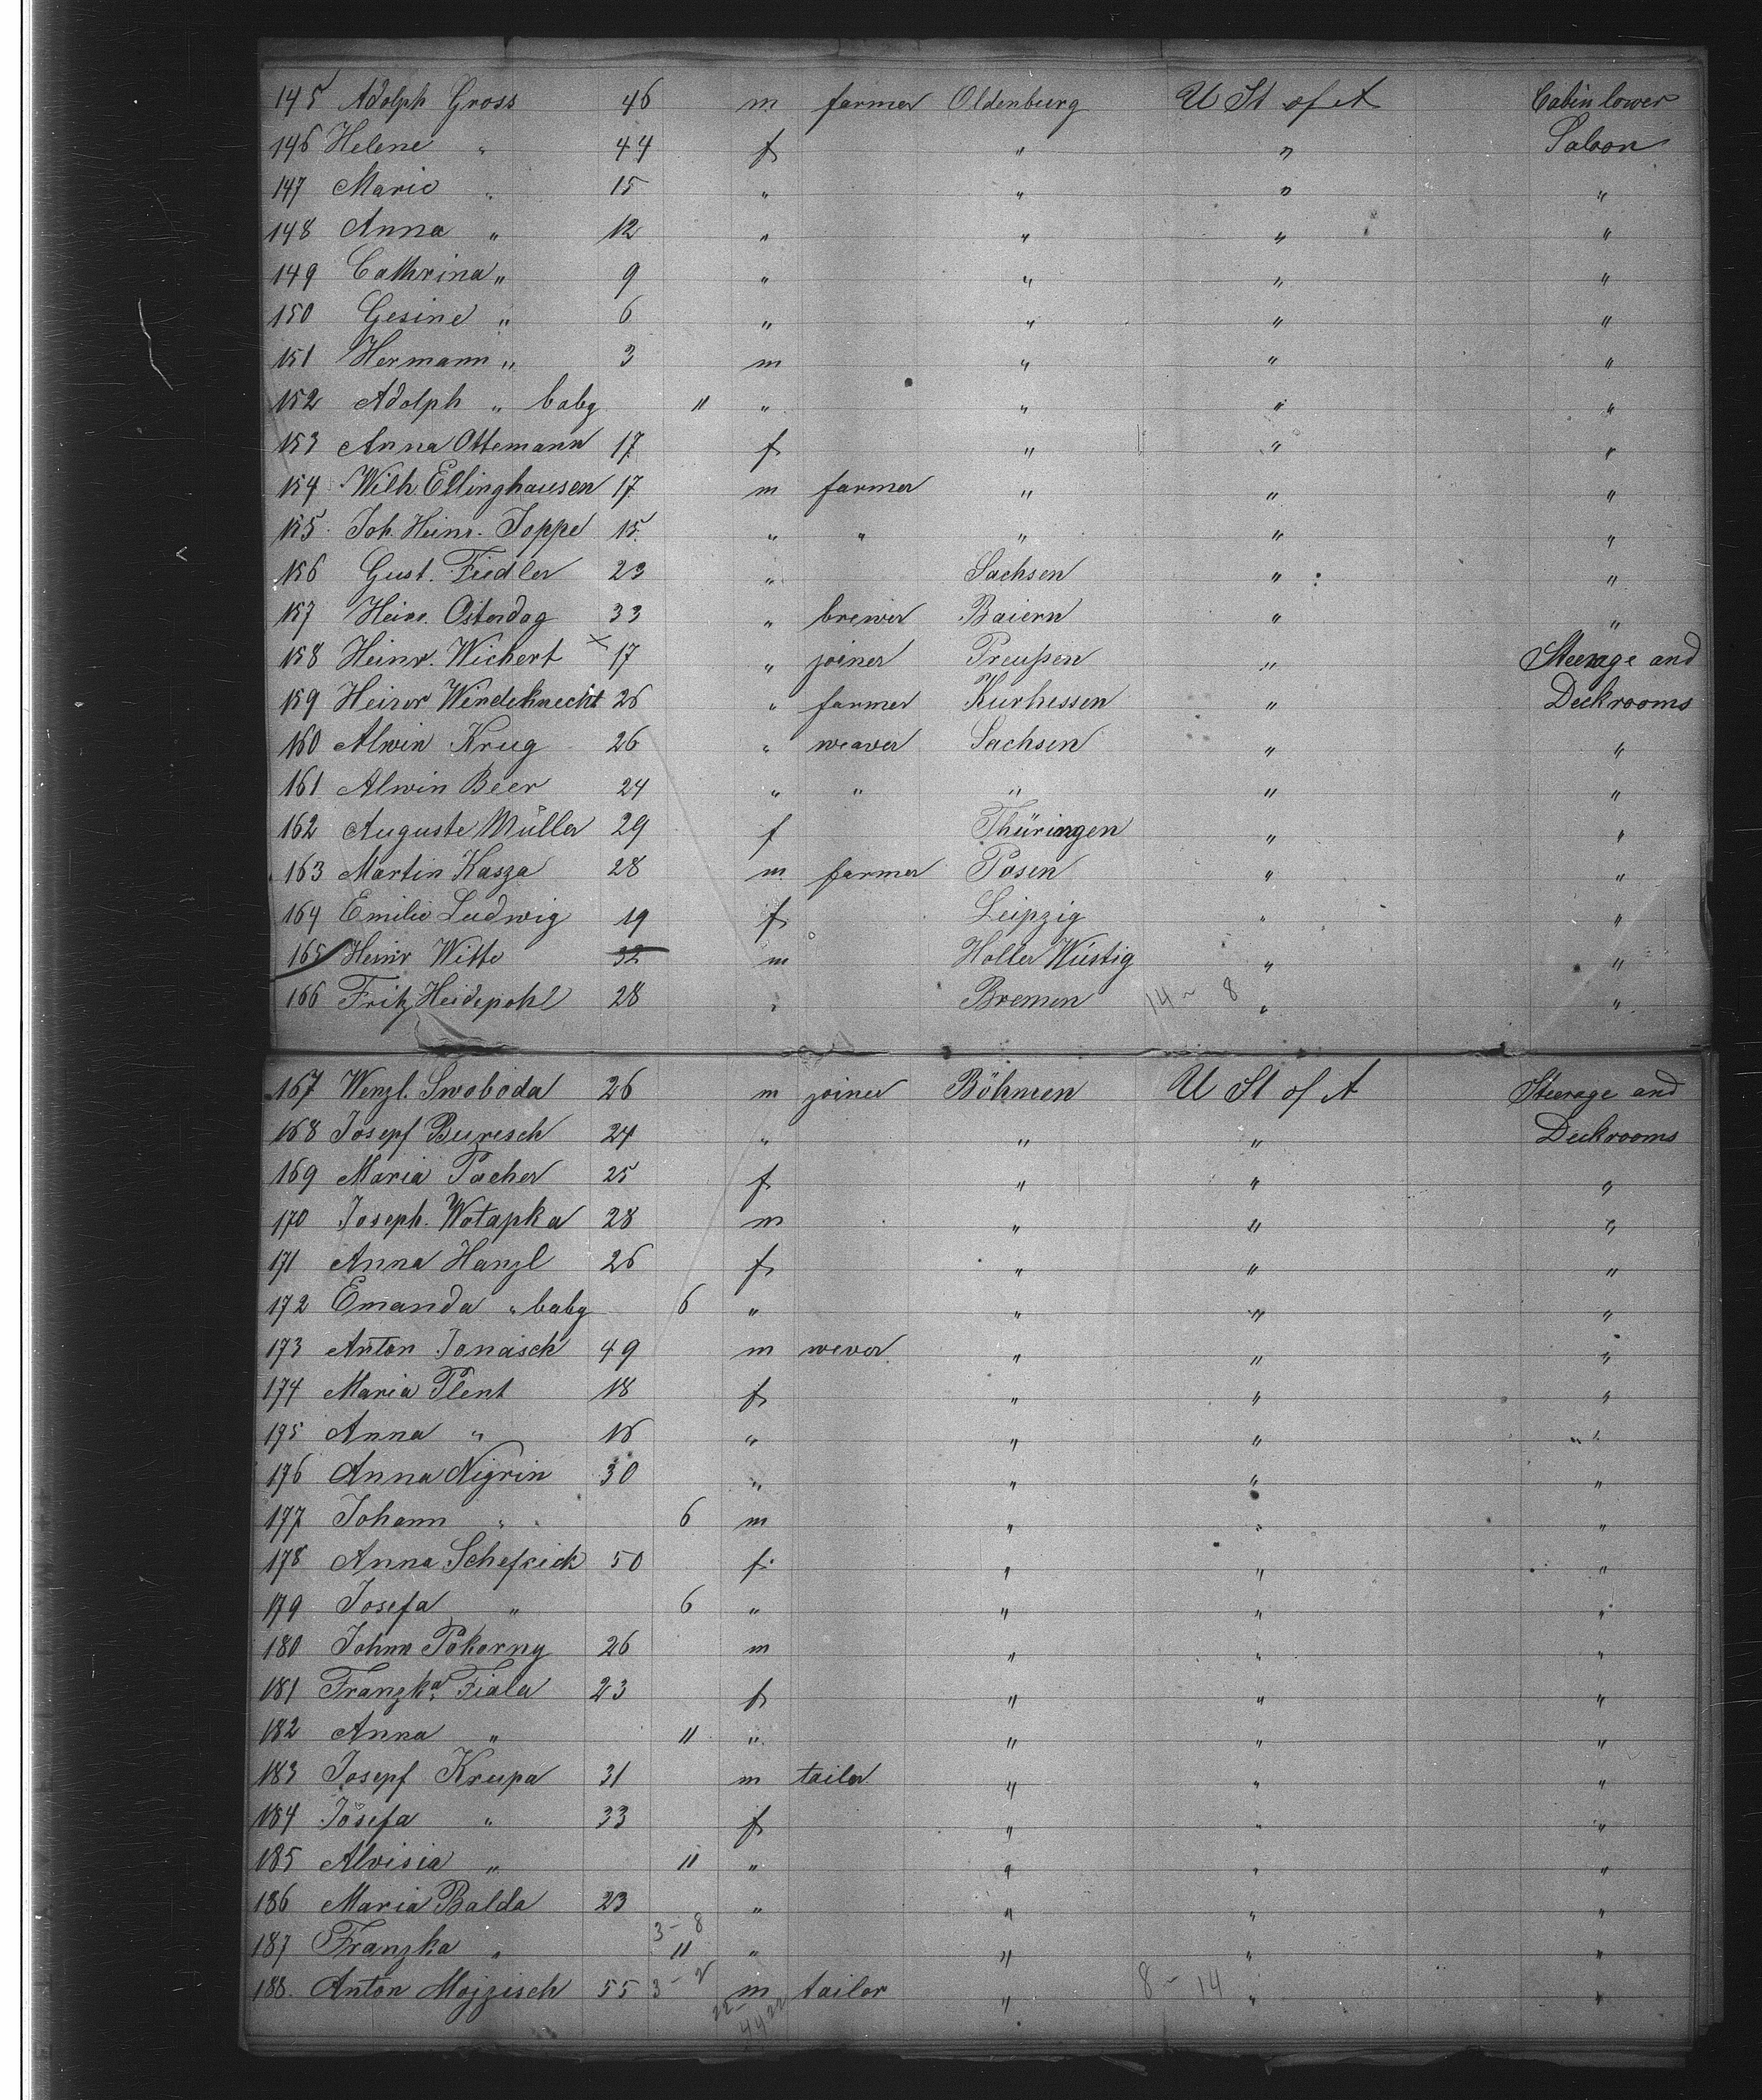 145 Adolph Gross 46 m farmer Oldenburg U St of A Cabin lower
146 Helene " 44 f " " Saloon
147 Marie " 15 " " " "
148 Anna " 12 " " " "
149 Cathrina " 9 " " " "
150 Gesine " 6 " " " "
151 Hermann " 3 m " " "
152 Adolph " baby 11 " " " "
153 Anna Ottemann 17 f " " "
154 Wilh. Ellinghausen 17 m farmer " " "
155 Joh. Heinr. Joppe 15 " " " " "
156 Gust. Fiedler 23 " Sachsen " "
157 Heinr. Osterdag 33 " brewer Baiern " "
158 Heinr. Wichert x 17 " joiner Preußen " Steerage and
159 Heinr Windeknecht 26 " farmer Kurhessen " Deckrooms
160 Alwin Krug 26 " weaver Sachsen " "
161 Alwin Beer 24 " " " " "
162 Auguste Müller 29 f Thüringen " "
163 Martin Kasza 28 m farmer Posen " "
164 Emilie Ludwig 19 f Leipzig " "
165 Heinr Witte 32 m Holler Wüstig " "
166 Fritz Heidepohl 28 " Bremen 14 ~ 8 " "
167 Wenzl. Swoboda 26 m joiner Böhmen U St of A Steerage and
168 Josepf Buresch 24 " " " Deckrooms
169 Maria Pacher 25 f " " "
170 Joseph. Wotapka 28 m " " "
171 Anna Hanzl 26 f " " "
172 Emanda " baby 6 " " " "
173 Anton Jonasch 49 m wever " " "
174 Maria Plent 18 f " " "
175 Anna " 16 " " " "
176 Anna Nigrin 30 " " " "
177 Johann " 6 m " " "
178 Anna Schefcick 50 f " " "
179 Josefa " 6 " " " "
180 Johnn Pokorny 26 m " " "
181 Franzka Fiala 23 f " " "
182 Anna " 11 " " " "
183 Josepf Krupa 31 m tailor " " "
184 Josefa " 33 f " " "
185 Aloisia " 11 " " " "
186 Maria Balda 23 " " " "
3 - 8
187 Franzka " 11 " " " "
188. Anton Mojzisch 55 3 - 2 m tailor " 8 - 14 " "
22 - 22
44